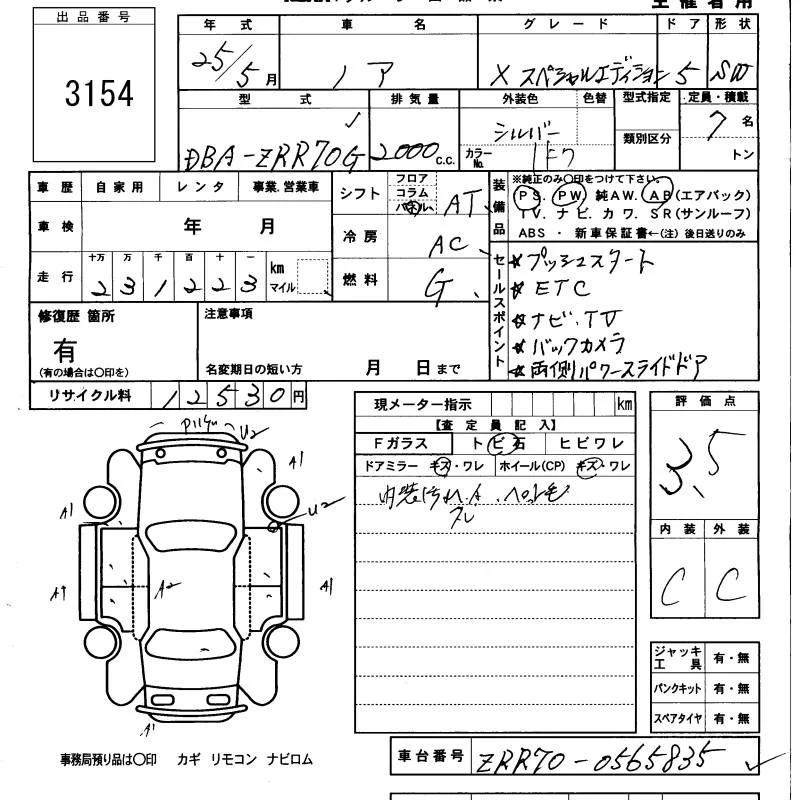 主催者用
出品番号
3154
年式
25/5月
車名
ノア
グレード
X スペシャルエディション
ドア
5
形状
SW
型式
DBA-ZRR70G
排気量
2000 c.c.
外装色
シルバー
色替
カラーNo.
1F7
型式指定
類別区分
定員・積載
7名
トン
車歴
自家用
レンタ
事業.営業車
車検
年 月
走行
十万 万 千 百 十 一
2 3 1 2 2 3
km
マイル
シフト
フロア
コラム
パネル
AT
冷房
AC
燃料
G
装備品
※純正のみ〇印をつけて下さい。
PS. PW. 純AW. AB(エアバック)
TV. ナビ. カワ. SR(サンルーフ)
ABS ・ 新車保証書←(注) 後日送りのみ
セールスポイント
☆プッシュスタート
☆ETC
☆ナビ.TV
☆バックカメラ
☆両側パワースライドドア
修復歴 箇所
有
(有の場合は〇印を)
注意事項
名変期日の短い方 月 日まで
リサイクル料
12530円
U2
A1
A1
U2
A1
A2
A1
A1
事務局預り品は〇印 カギ リモコン ナビロム
現メーター指示
km
【査定員記入】
Fガラス
トビ石
ヒビワレ
ドアミラー キズ・ワレ
ホイール(CP) キズ・ワレ
内装汚れ.A.ペット毛
スレ
評価点
3.5
内装
外装
C
C
ジャッキ工具
有・無
パンクキット
有・無
スペアタイヤ
有・無
車台番号
ZRR70-0565835